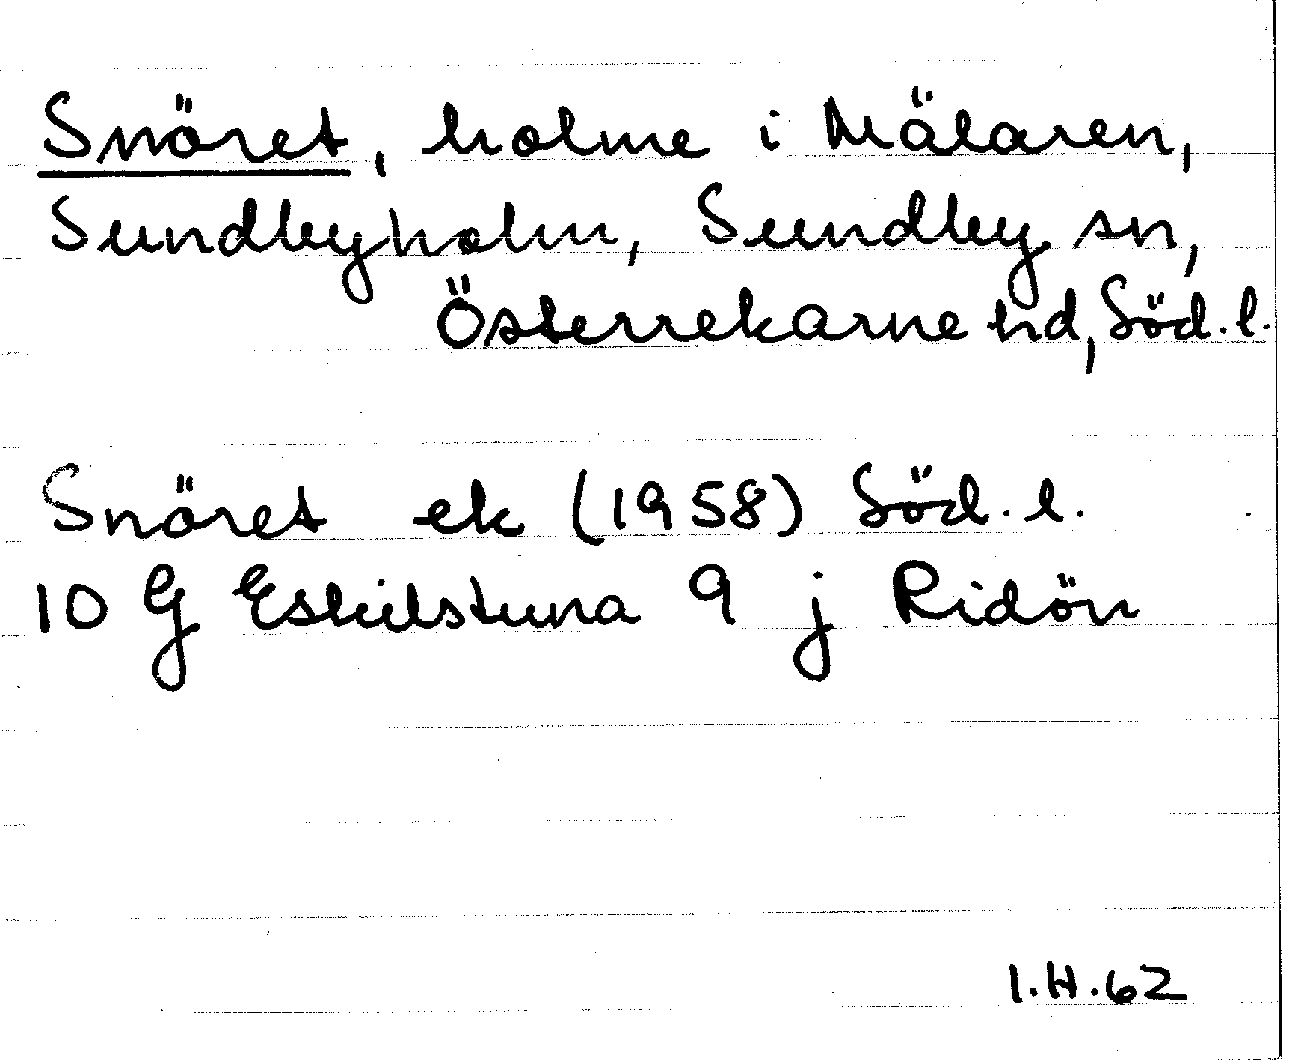 Snöret, holme i Mälaren,
Sundbyholm, Sundby sn,
Österrekarne hd, Söd.l.
Snöret ek (1958) Söd.l.
10 G Eskilstuna 9 j Ridön
I.H.62